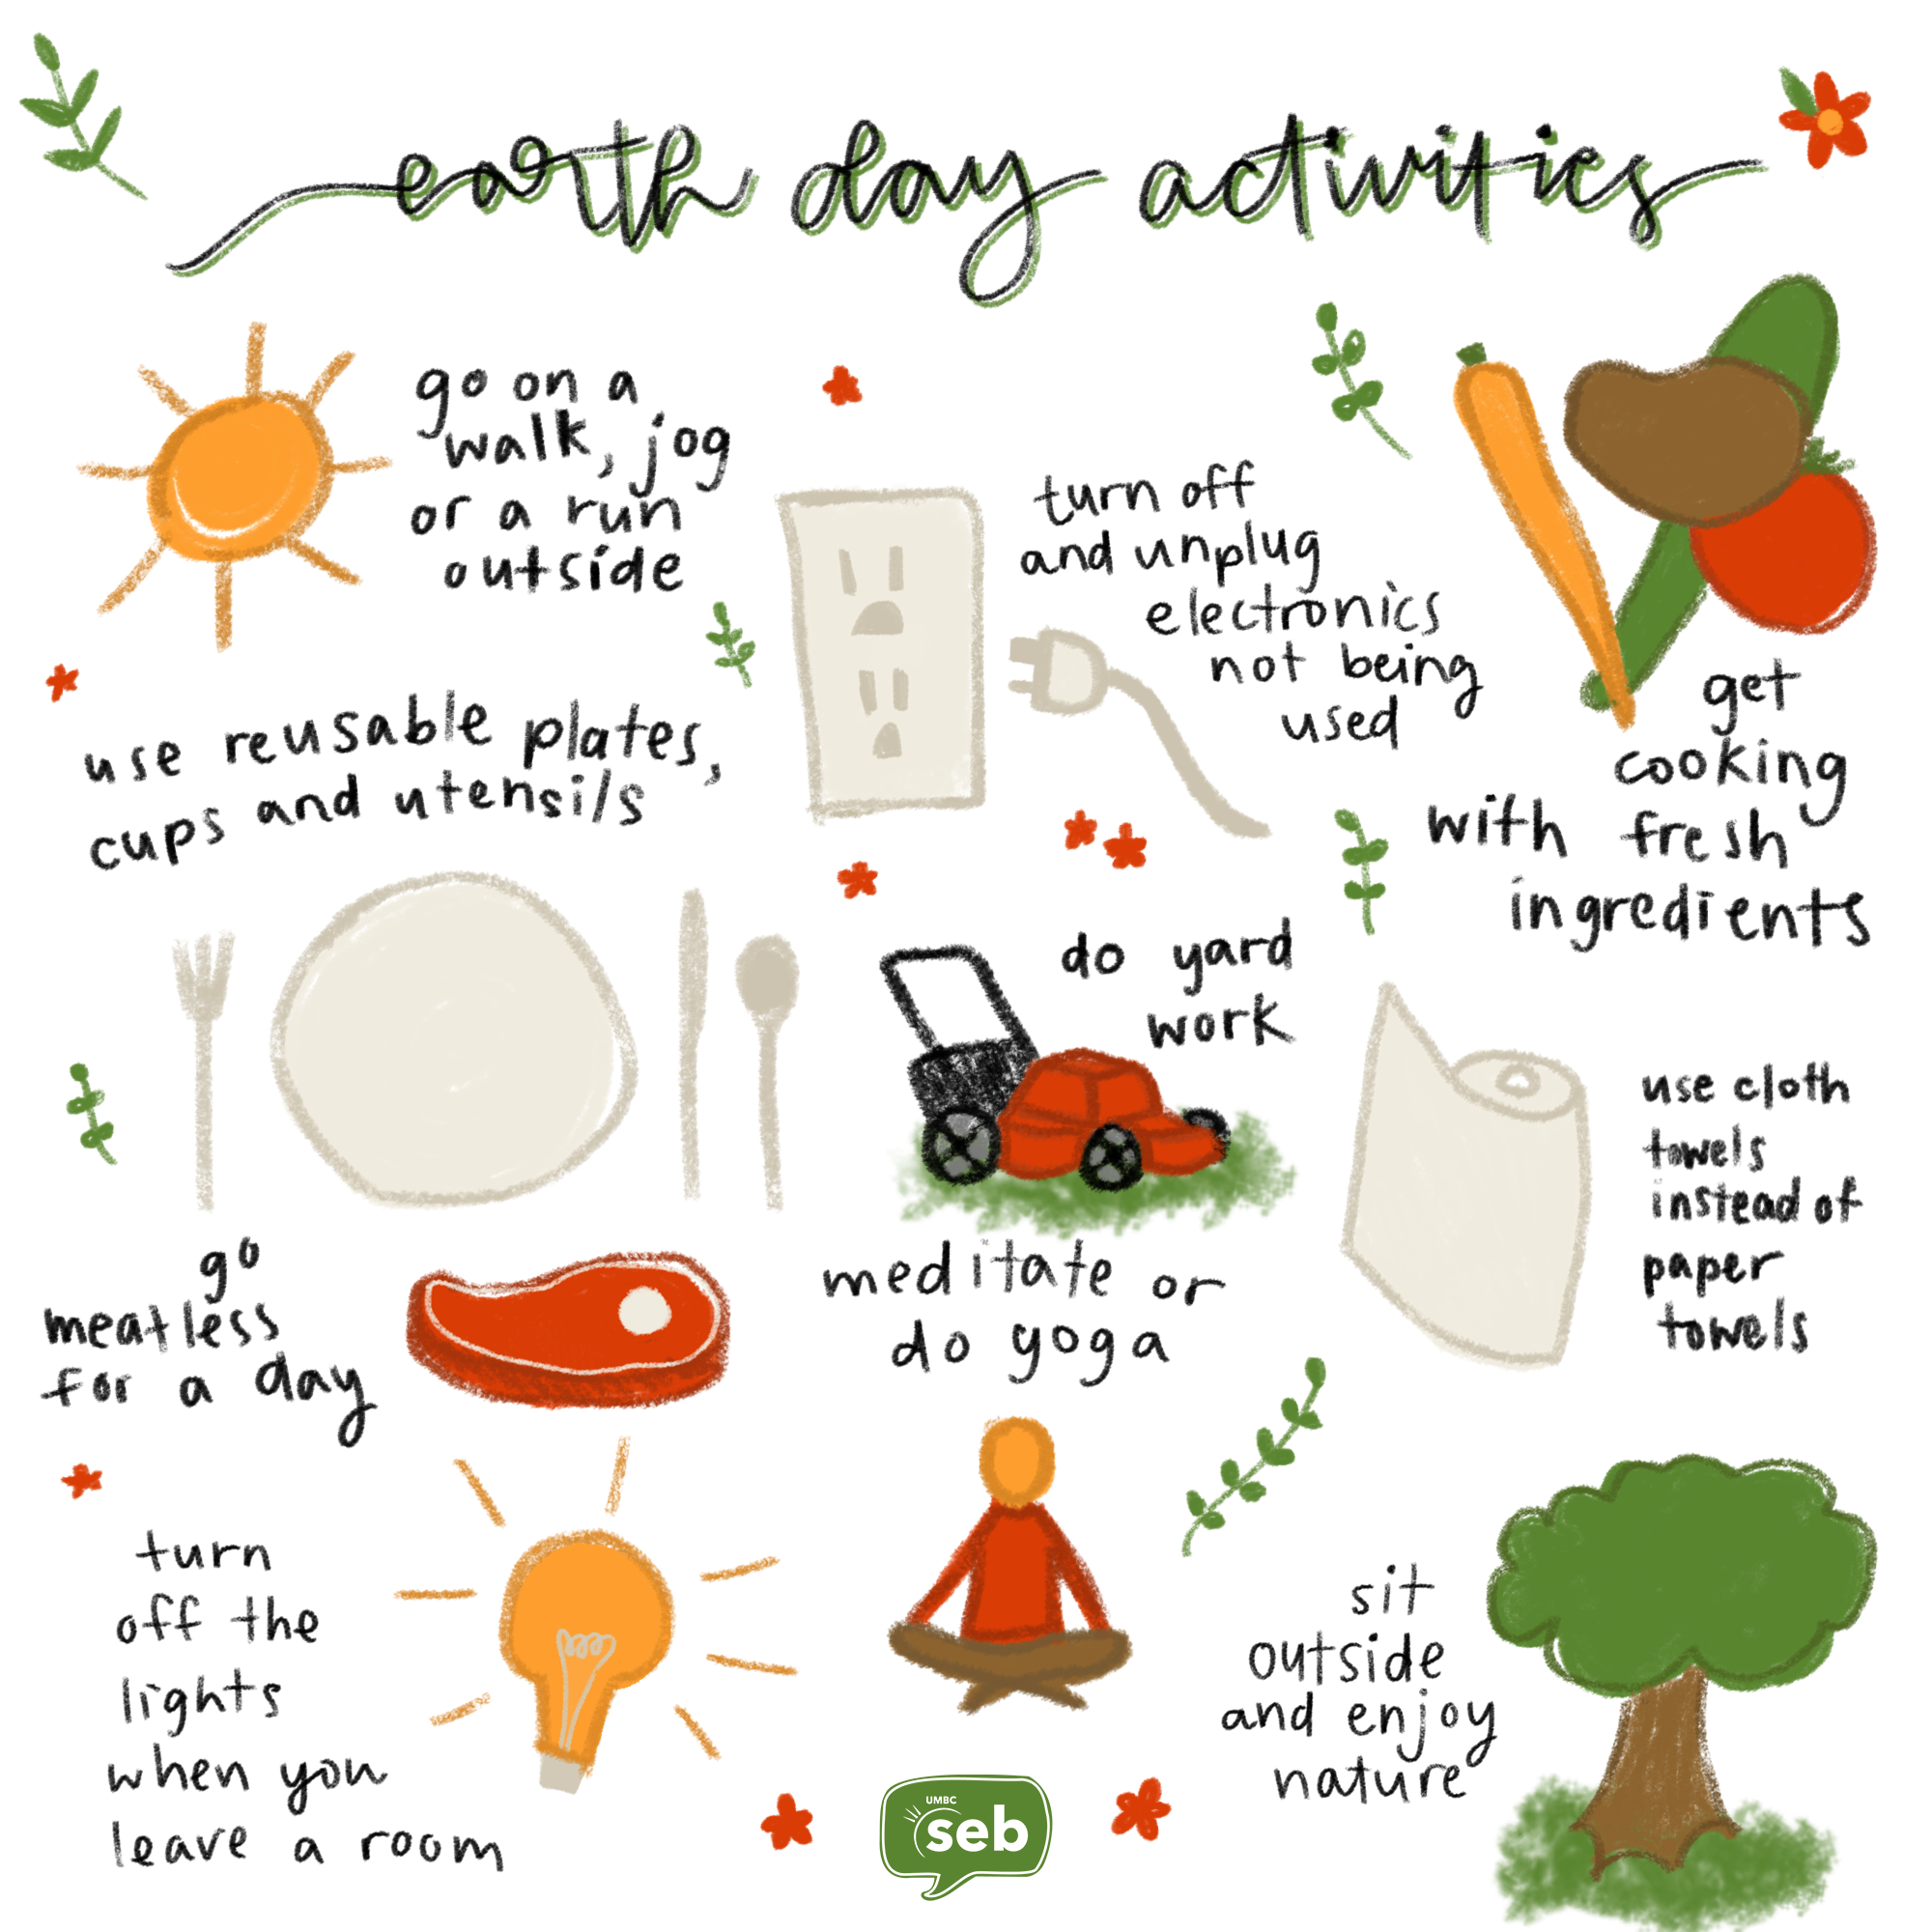 earth day activities
go on a
walk, jog
or a run
outside
turn off
and unplug
electronics
not being
used
get
cooking
with fresh
ingredients
use reusable plates,
cups and utensils
do yard
work
use cloth
towels
instead of
paper
towels
go
meatless
for a day
meditate or
do yoga
turn
off the
lights
when you
leave a room
sit
outside
and enjoy
nature
UMBC
seb